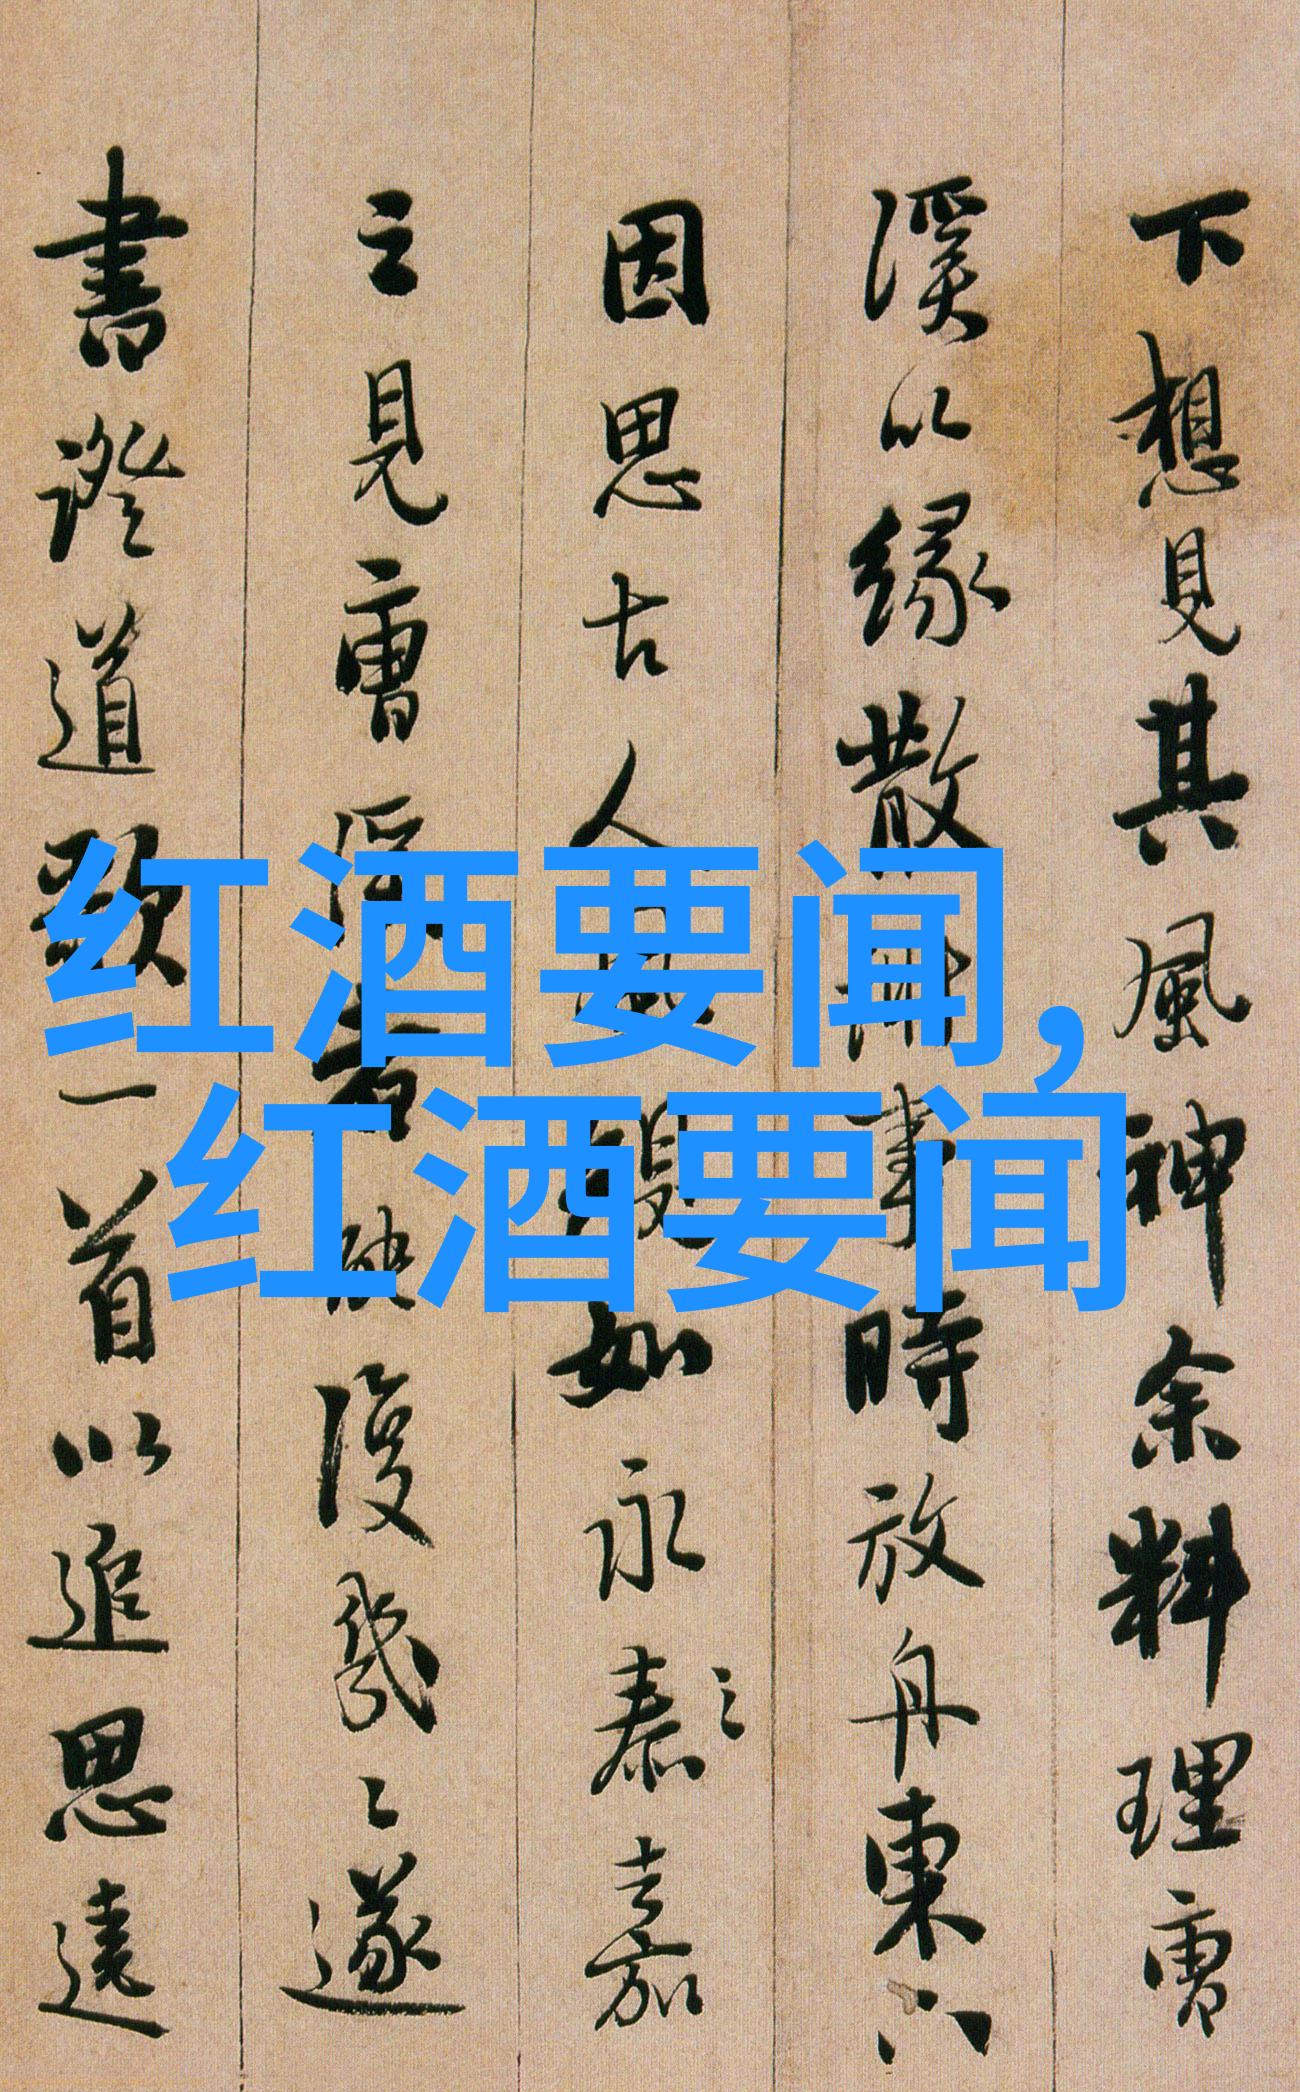 下想見其風神余料理曹
溪以緣散 事時放舟東下
因思古人 如永泰之去嘉
之見曹溪 後幾之遂
書證道歌一首以追思遠
红酒要闻,
红酒要闻